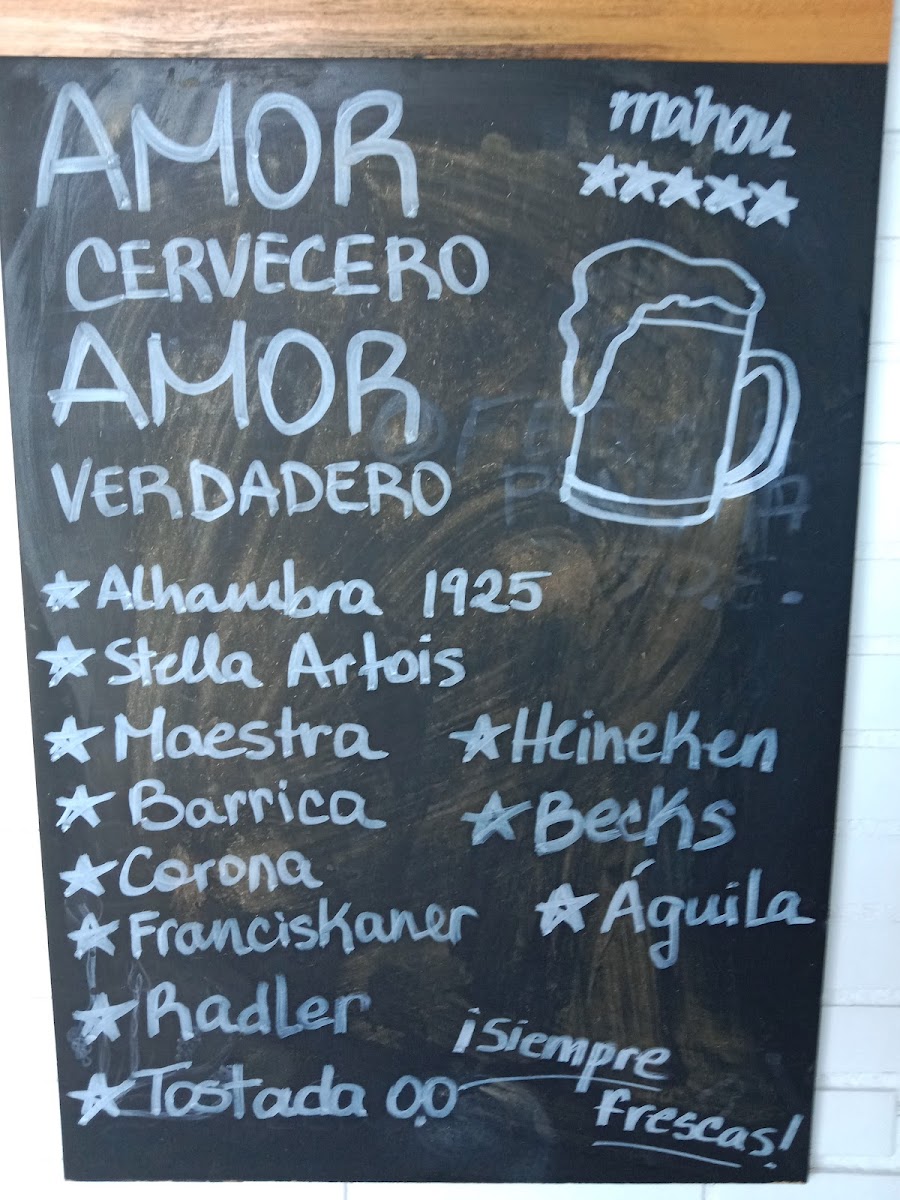 AMOR
CERVECERO
AMOR
VERDADERO
mahou
Alhambra 1925
Stella Artois
Maestra
Barrica
Corona
Franciskaner
Radler
Tostada 0,0
Heineken
Becks
Águila
¡Siempre
frescas!